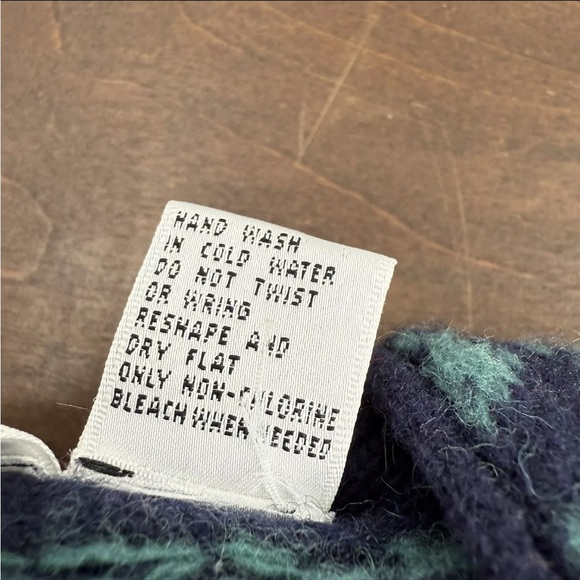 HAND WASH
IN COLD WATER
DO NOT TWIST
OR WRING
RESHAPE AND
DRY FLAT
ONLY NON-CHLORINE
BLEACH WHEN NEEDED